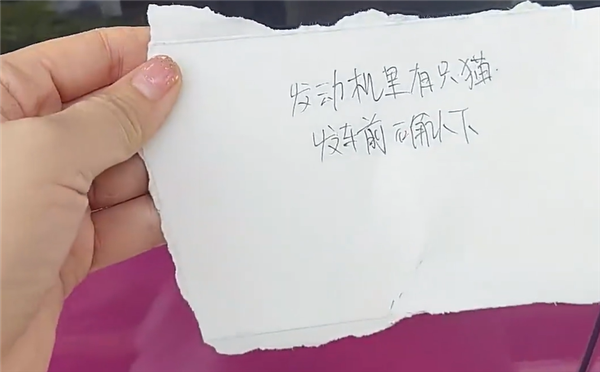 发动机里有只猫.
发车前确认下